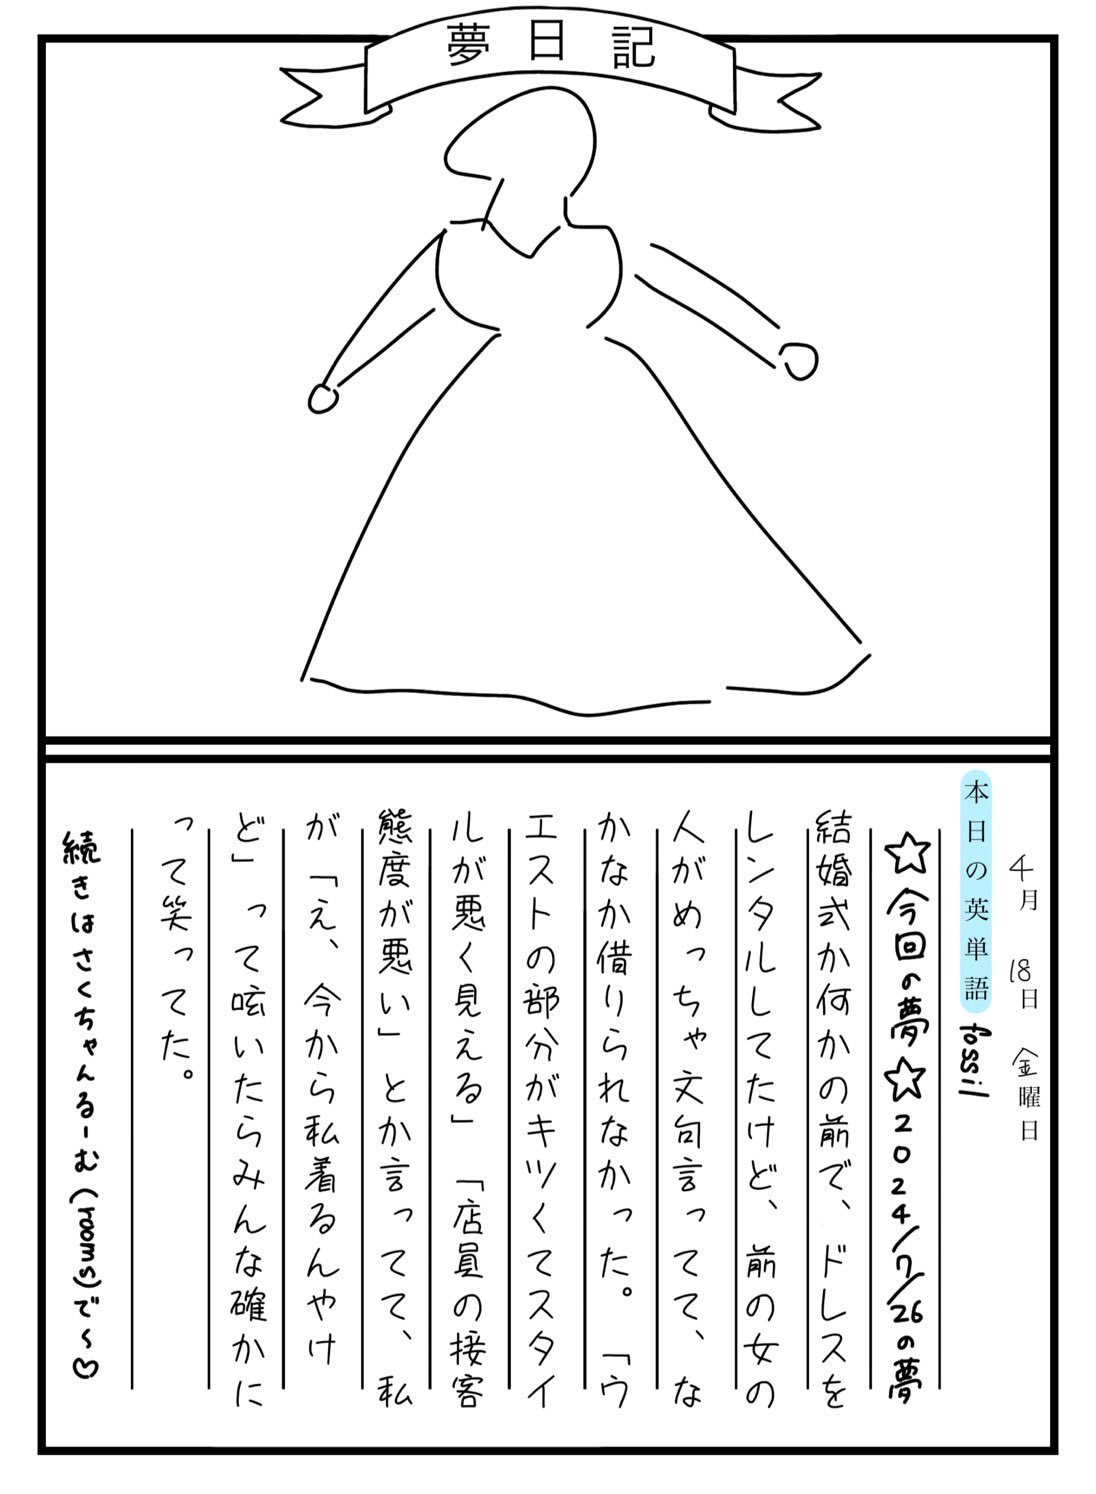 夢日記
4月 18日 金曜日
本日の英単語 fossil
☆今回の夢☆2024/7/26の夢
結婚式か何かの前で、ドレスを
レンタルしてたけど、前の女の
人がめっちゃ文句言ってて、な
かなか借りられなかった。「ウ
エストの部分がキツくてスタイ
ルが悪く見える」「店員の接客
態度が悪い」とか言ってて、私
が「え、今から私着るんやけ
ど」って呟いたらみんな確かに
って笑ってた。
続きはさくちゃんるーむ(rooms)で〜♡